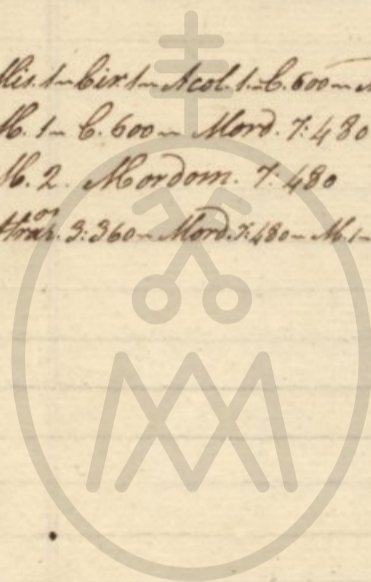 Mis. 1 ~ Cir. 1 ~ Acol. 1 ~ C. 600 ~
M. 1 ~ C. 600 ~ Mord. 7: 480
M. 2. Mordom. 7. 480
3: 360 ~ Mord. 7: 480 ~ M. 1 ~